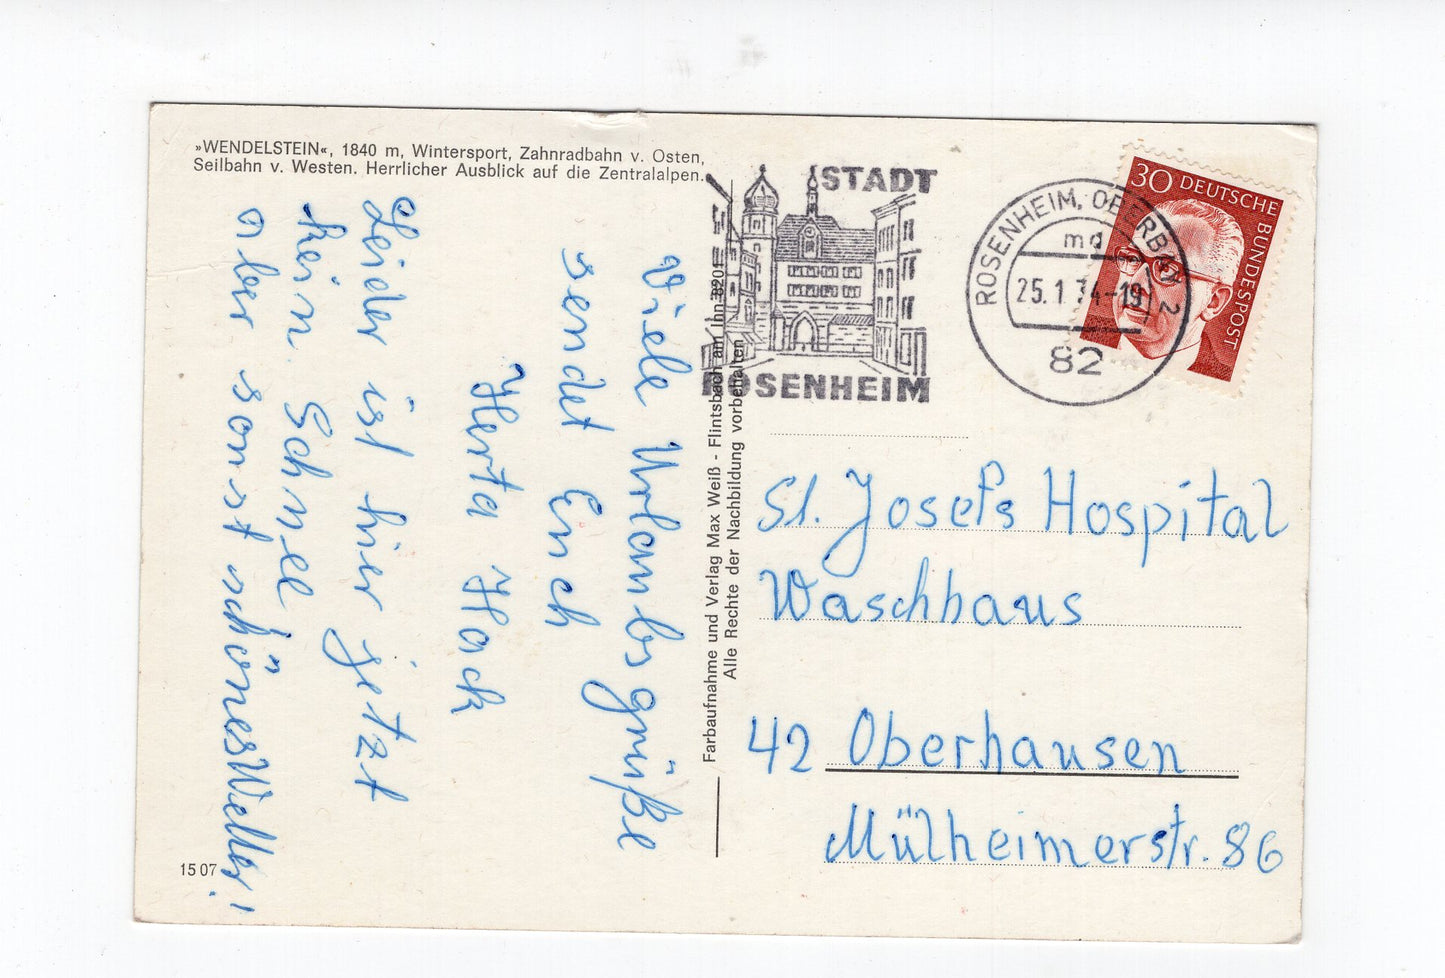 »WENDELSTEIN«, 1840 m, Wintersport, Zahnradbahn v. Osten,
Seilbahn v. Westen. Herrlicher Ausblick auf die Zentralalpen.
Viele Urlaubsgrüße
sendet Euch
Herta Hack
Leider ist hier jetzt
kein Schnee
aber sonst schönes Wetter!
15 07
Farbaufnahme und Verlag Max Weiß - Flintsbach am Inn 8201
Alle Rechte der Nachbildung vorbehalten
STADT
ROSENHEIM
ROSENHEIM, OBERBAY 2
md
25.1.74-19
82
30 DEUTSCHE BUNDESPOST
St. Josefs Hospital
Waschhaus
42 Oberhausen
Mülheimerstr. 86